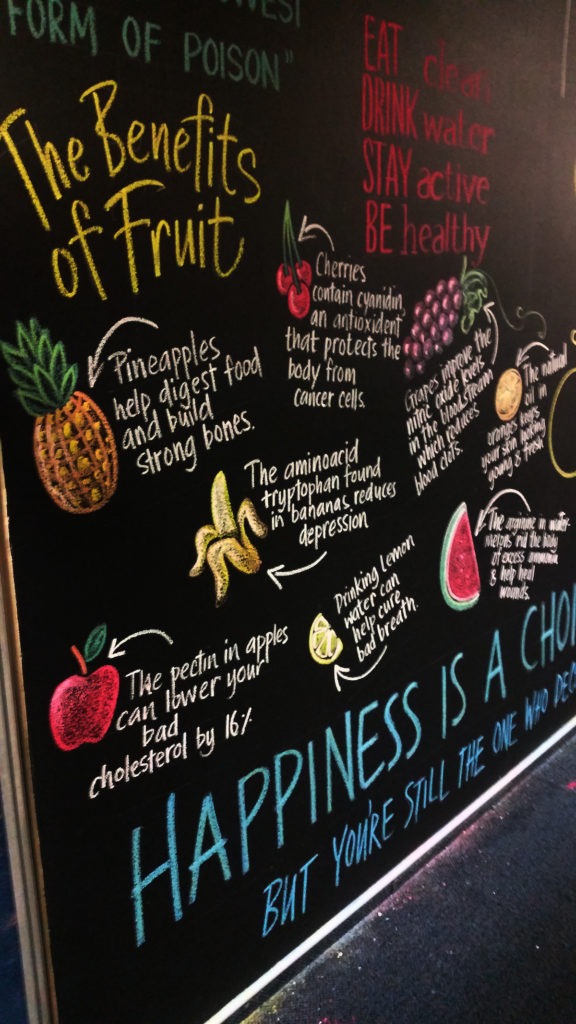 FORM OF POISON"
EAT clean
DRINK water
STAY active
BE healthy
The Benefits
of Fruit
Cherries
contain cyanidin,
an antioxident
that protects the
body from
cancer cells.
Pineapples
help digest food
and build
strong bones.
Grapes improve the
nitric oxide levels
in the bloodstream
which reduces
blood clots.
The natural
oil in
oranges keeps
your skin looking
young & fresh
The aminoacid
tryptophan found
in bananas reduces
depression
The arginine in water-
melons rid the body
of excess ammonia
& help heal
wounds.
Drinking lemon
water can
help cure
bad breath.
The pectin in apples
can lower your
bad
cholesterol by 16%
HAPPINESS IS A CHOI
BUT YOU'RE STILL THE ONE WHO DEC